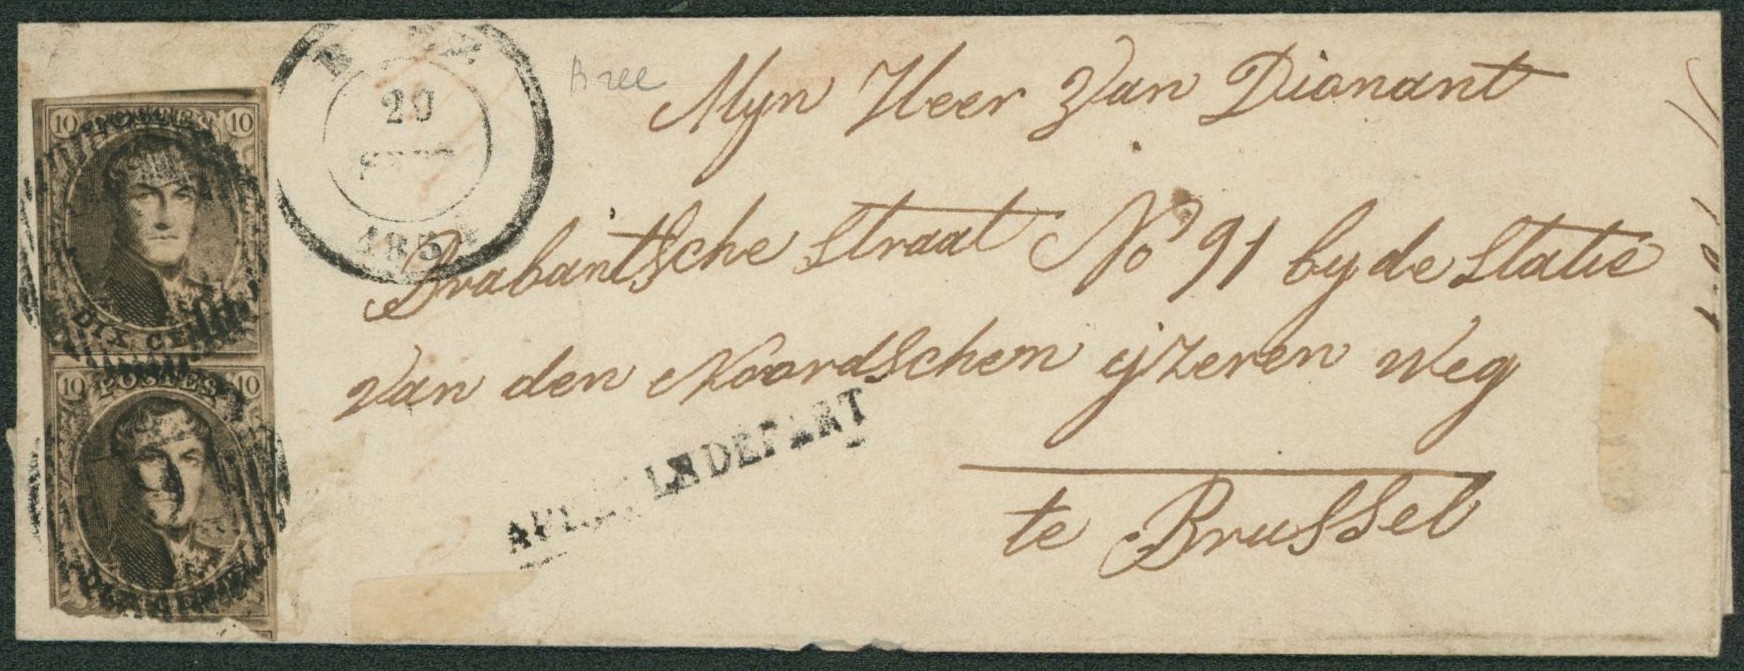 10 POSTES 10
DIX CE
10 POSTES 10
20
185
Bree
Mÿn Heer Van Dionant
Brabantsche straat No 91 by de statie
van den Noordschen ijzeren weg
APRÈS LE DEPART
te Brussel